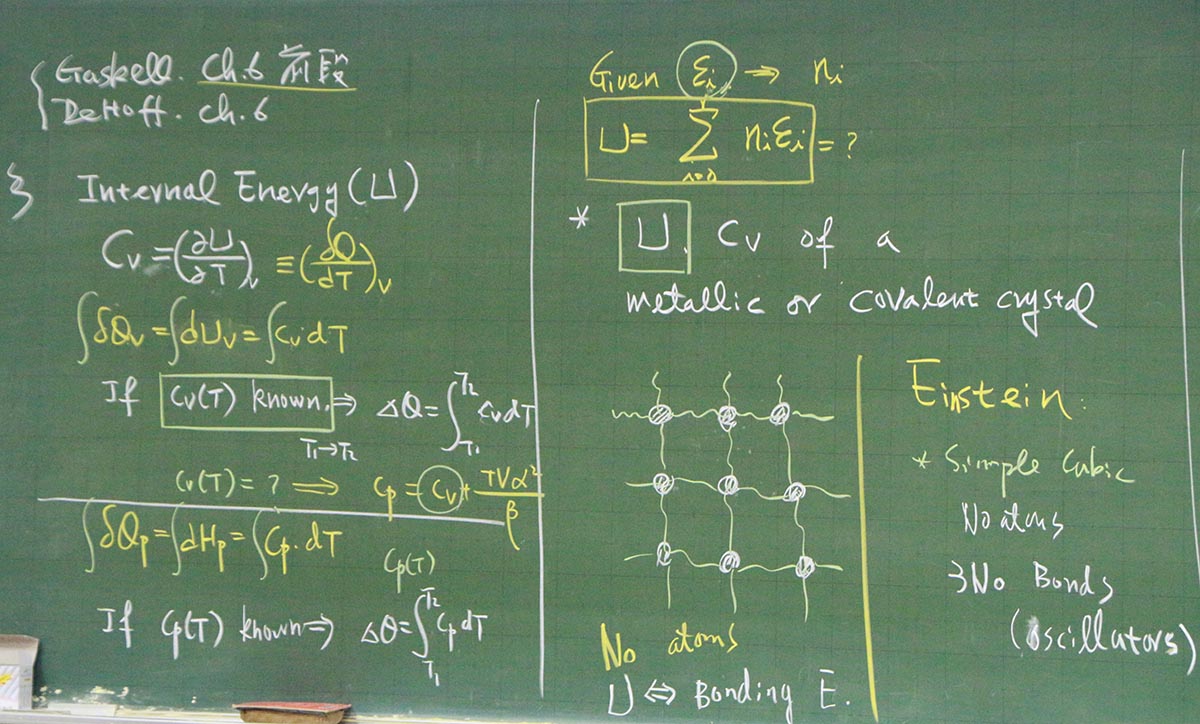 Gaskell. Ch.6 前段
DeHoff. ch.6
§ Internal Energy (U)
Cv = (∂U/∂T)v ≡ (δQ/dT)v
∫δQv = ∫dUv = ∫Cv dT
If Cv(T) known. ⇒ ΔQ = ∫T1T2 Cv dT
T1→T2
Cv(T) = ? ⇒ Cp = Cv + TVα²/β
∫δQp = ∫dHp = ∫Cp. dT
Cp(T)
If Cp(T) known ⇒ ΔQ = ∫T1T2 Cp dT
Given εi ⇒ ni
U = Σ i=0 ni εi = ?
* U, Cv of a
metallic or covalent crystal
No atoms
U ⇔ Bonding E.
Einstein:
* Simple Cubic
No atoms
3No Bonds
(oscillators)